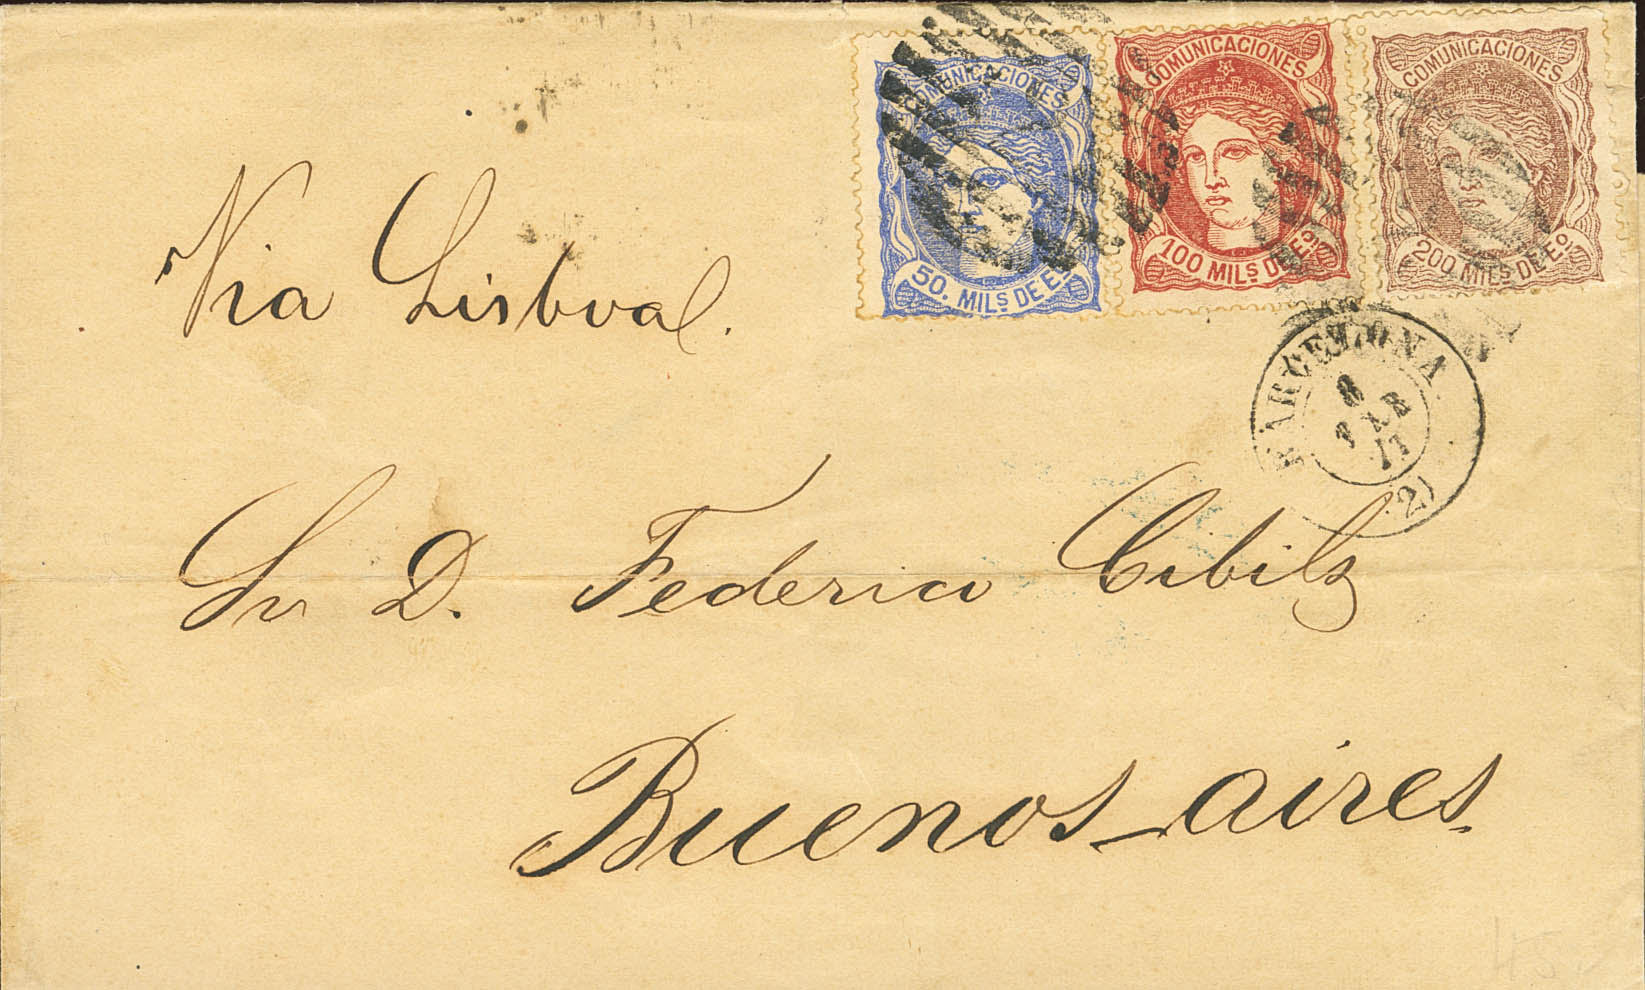 COMUNICACIONES
50. MILS DE E.
COMUNICACIONES
100 MILS DE Eo.
COMUNICACIONES
200 MILS DE Eo.
Via Lisboa.
BARCELONA
8
71
(2)
Sr D. Federico Cibils
Buenos-aires.
45